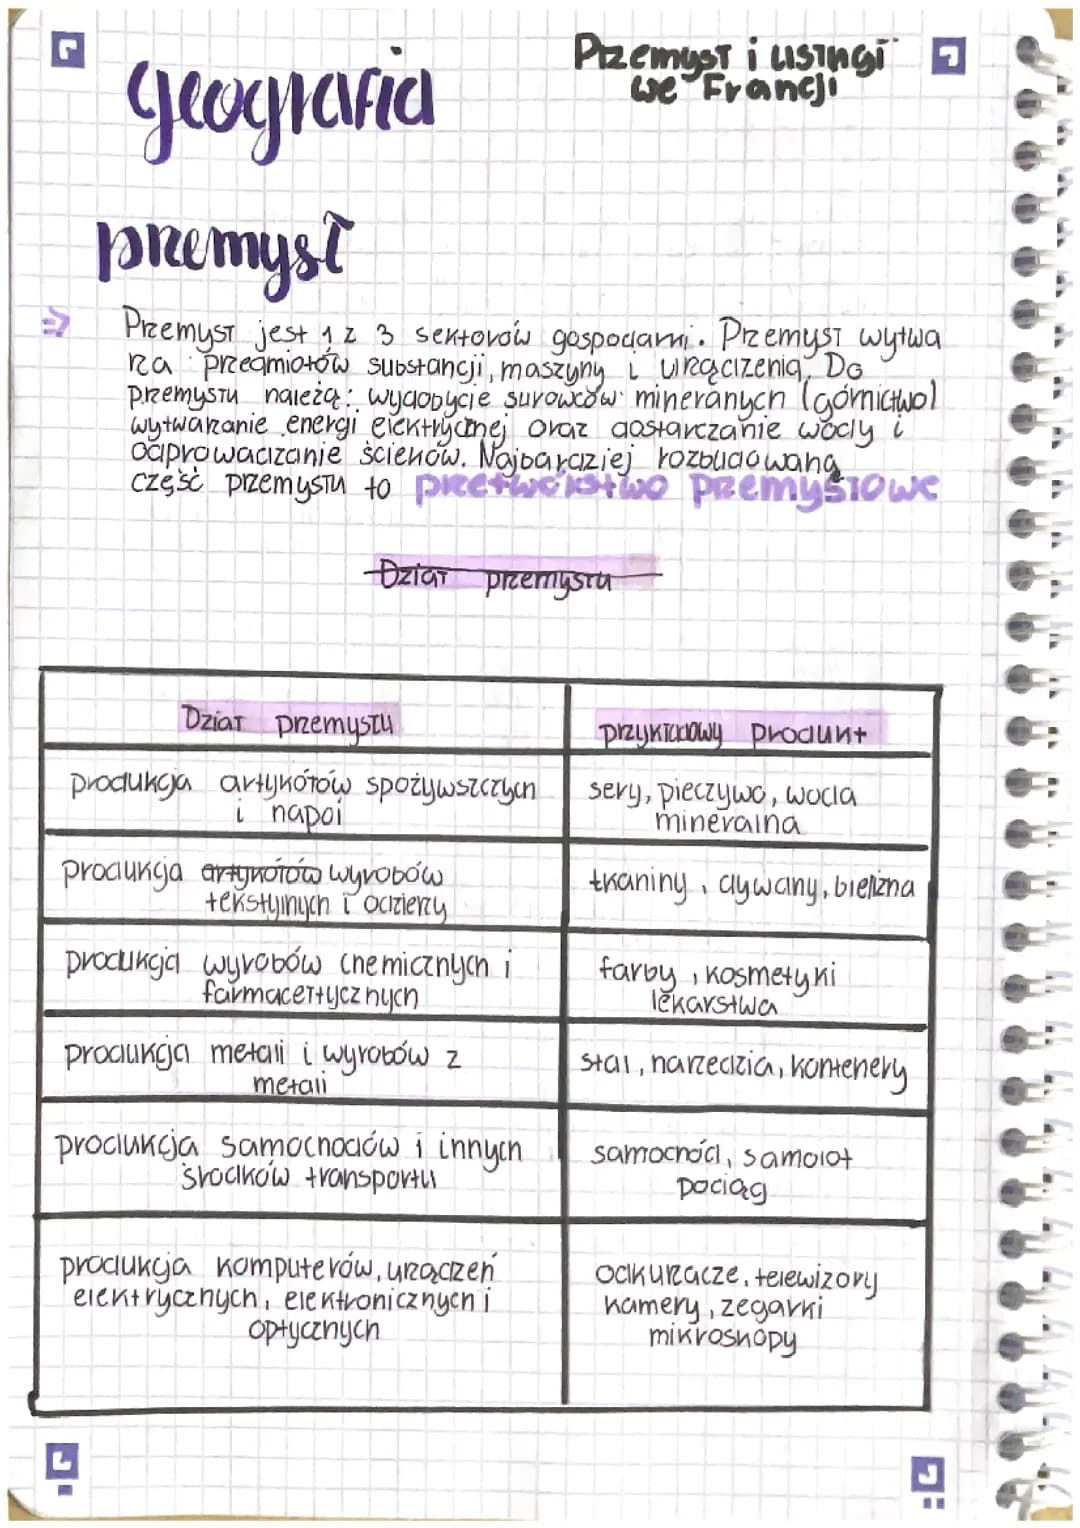 geografia
Przemysł i usługi
we Francji
przemysł
=> Przemysł jest 1 z 3 sektorów gospodarki. Przemysł wytwa
rza przedmiotów substancji, maszyny i urządzenia. Do
przemysłu należą: wydobycie surowców mineranych (górnictwo)
wytwarzanie energi elektrycznej oraz dostarczanie wody i
odprowadzanie ścieków. Najbardziej rozbudowaną
część przemysłu to przetwórstwo przemysłowe
Dział przemysłu
Dział przemysłu | przykładowy produkt
produkcja artykółów spożywszczych | sery, pieczywo, woda
i napoi | mineralna
produkcja artykółów wyrobów | tkaniny, dywany, bielizna
tekstylnych i odzierzy
produkcja wyrobów chemicznych i | farby, kosmetyki
farmacełtycznych | lekarstwa
produkcja metali i wyrobów z | stal, narzedzia, kontenery
metali
produkcja samochodów i innych | samochód, samolot
środków transportu | pociąg
produkcja komputerów, urządzeń | odkurzacze, telewizory
elektrycznych, elektronicznych i | kamery, zegarki
optycznych | mikroskopy